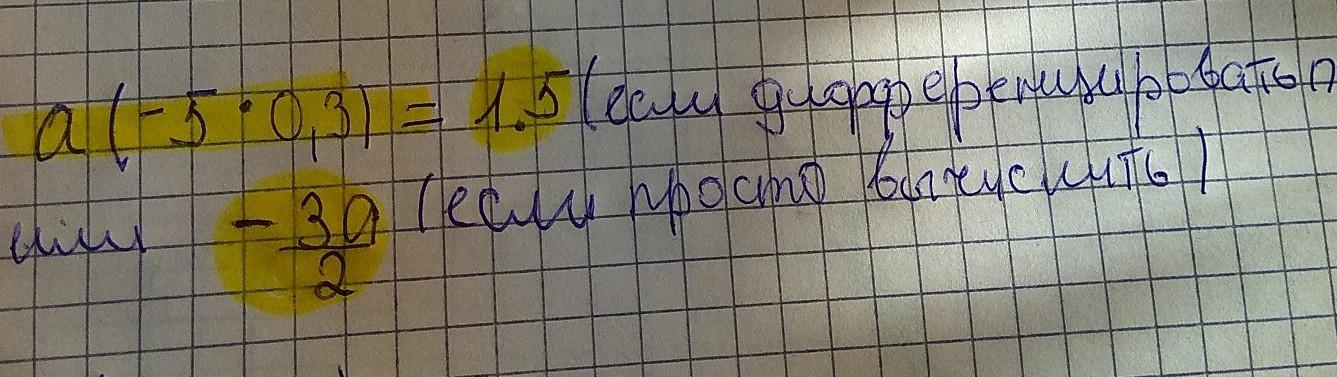 a (-5 · 0,3) = 1.5 (если дифференцировать)
или -3a/2 (если просто вычислить)